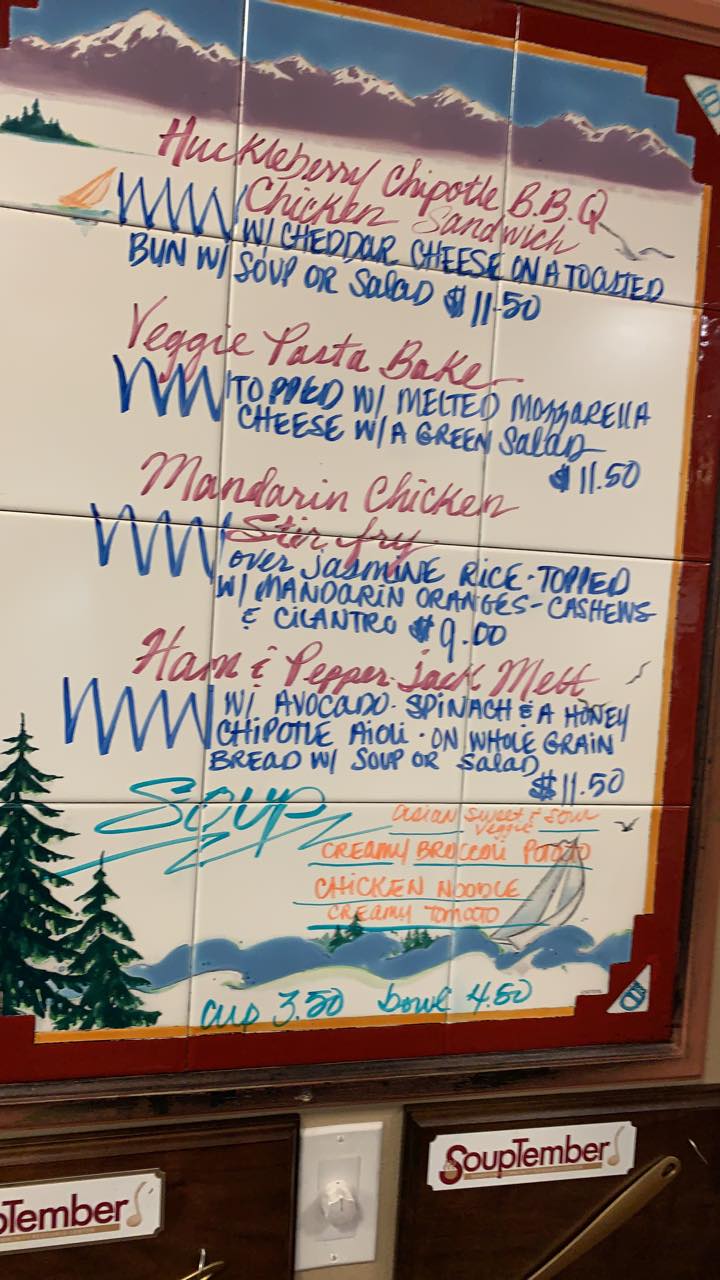 Huckleberry Chipotle B.B.Q
Chicken Sandwich
W/ CHEDDAR CHEESE ON A TOASTED
BUN W/ SOUP OR SALAD $11.50
Veggie Pasta Bake
TOPPED W/ MELTED MOZZARELLA
CHEESE W/ A GREEN SALAD
$11.50
Mandarin Chicken
Stir fry
OVER JASMINE RICE - TOPPED
W/ MANDARIN ORANGES - CASHEWS
& CILANTRO $9.00
Ham & Pepper Jack Melt
W/ AVOCADO - SPINACH & A HONEY
CHIPOTLE AIOLI - ON WHOLE GRAIN
BREAD W/ SOUP OR SALAD
$11.50
SOUP
ASIAN SWEET & SOUR
VEGGIE
CREAMY BROCCOLI POTATO
CHICKEN NOODLE
CREAMY TOMATO
cup 3.50 bowl 4.50
SoupTember
pTember